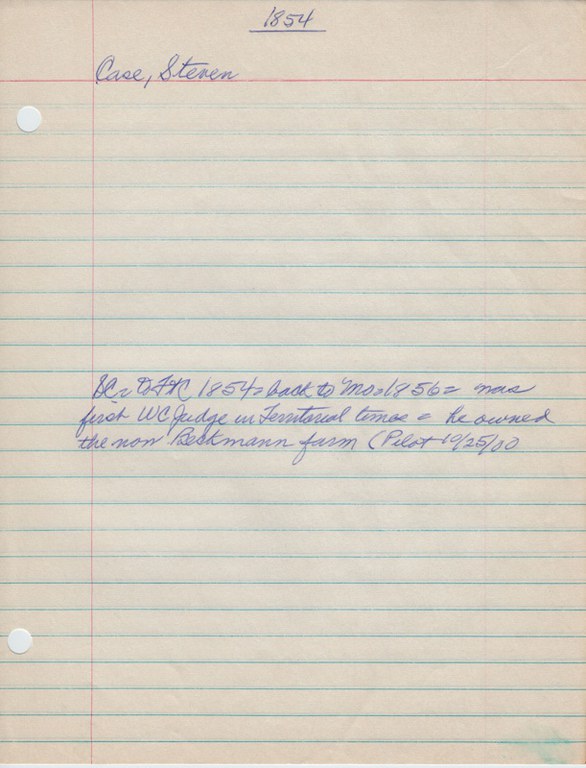 1854
Case, Steven
1854 = back to Mo = 1856 = was
first WC Judge in Territorial times = he owned
the now Beckmann farm (Pilot 10/25/00